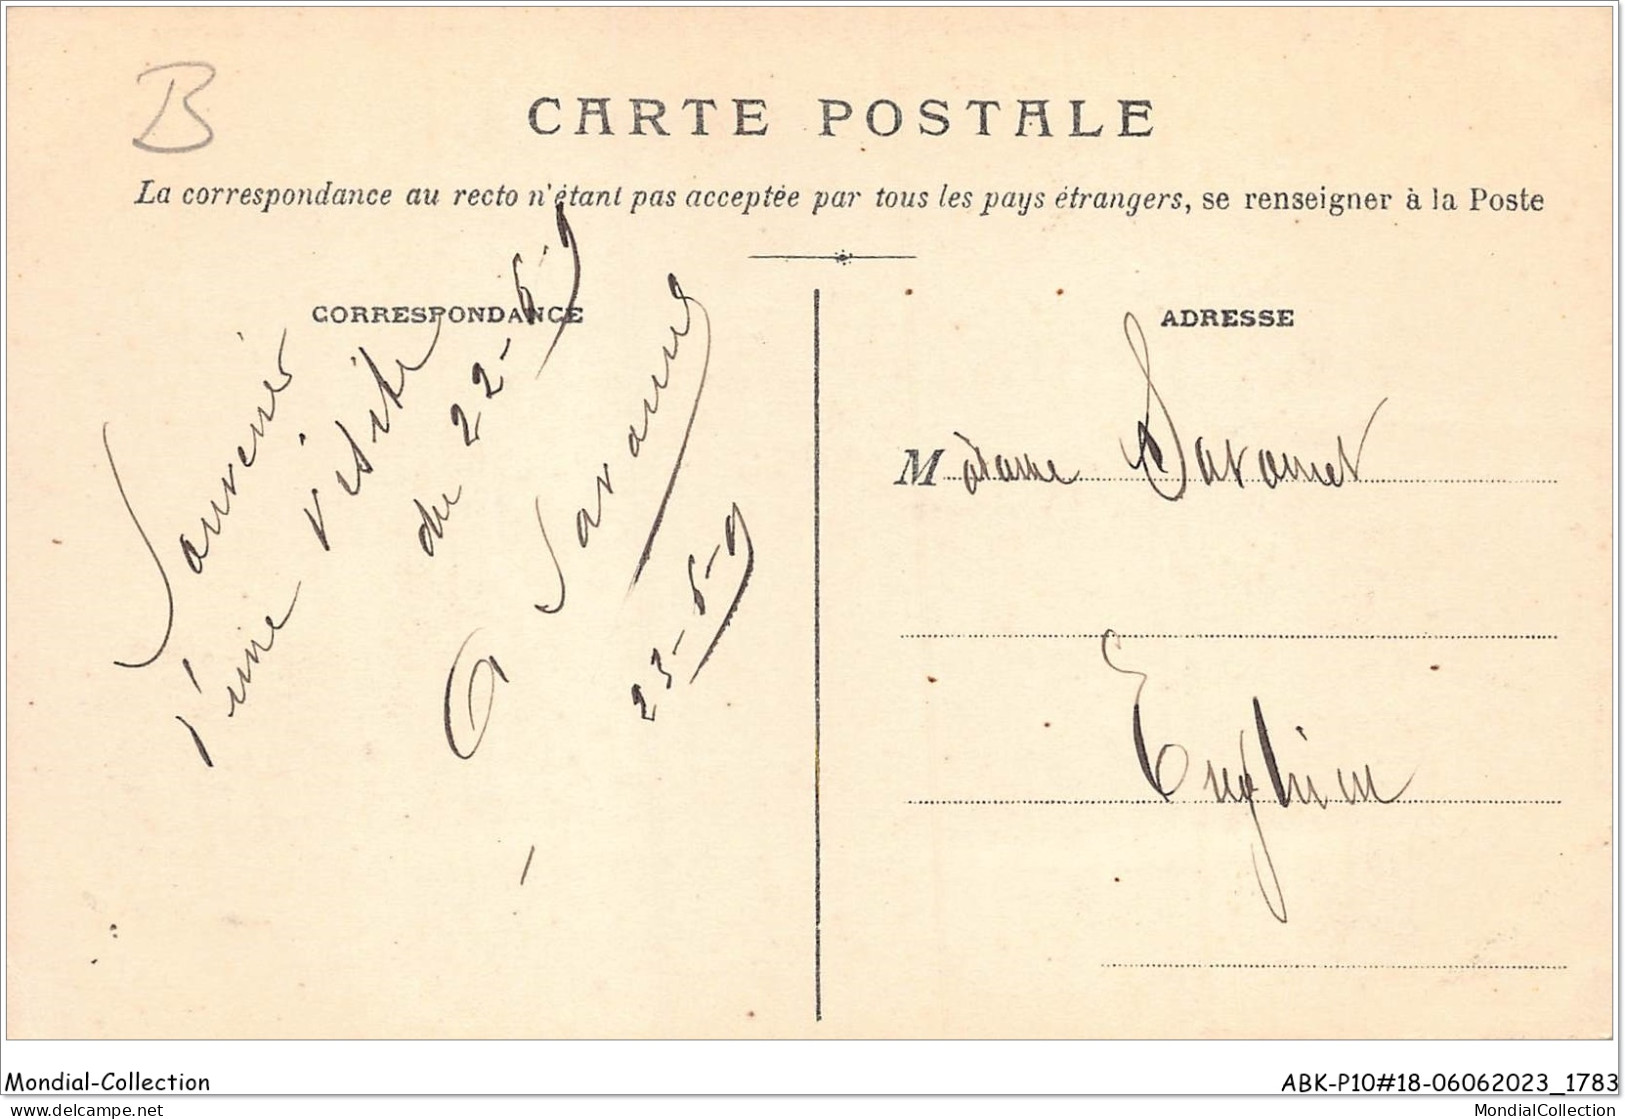 B
CARTE POSTALE
La correspondance au recto n'étant pas acceptée par tous les pays étrangers, se renseigner à la Poste
CORRESPONDANCE
Souvenir
d'une visite
du 22-6-9
23-6-9
ADRESSE
Madame
Enghien
Mondial-Collection
ABK-P10#18-06062023_1783
www.delcampe.net
MondialCollection